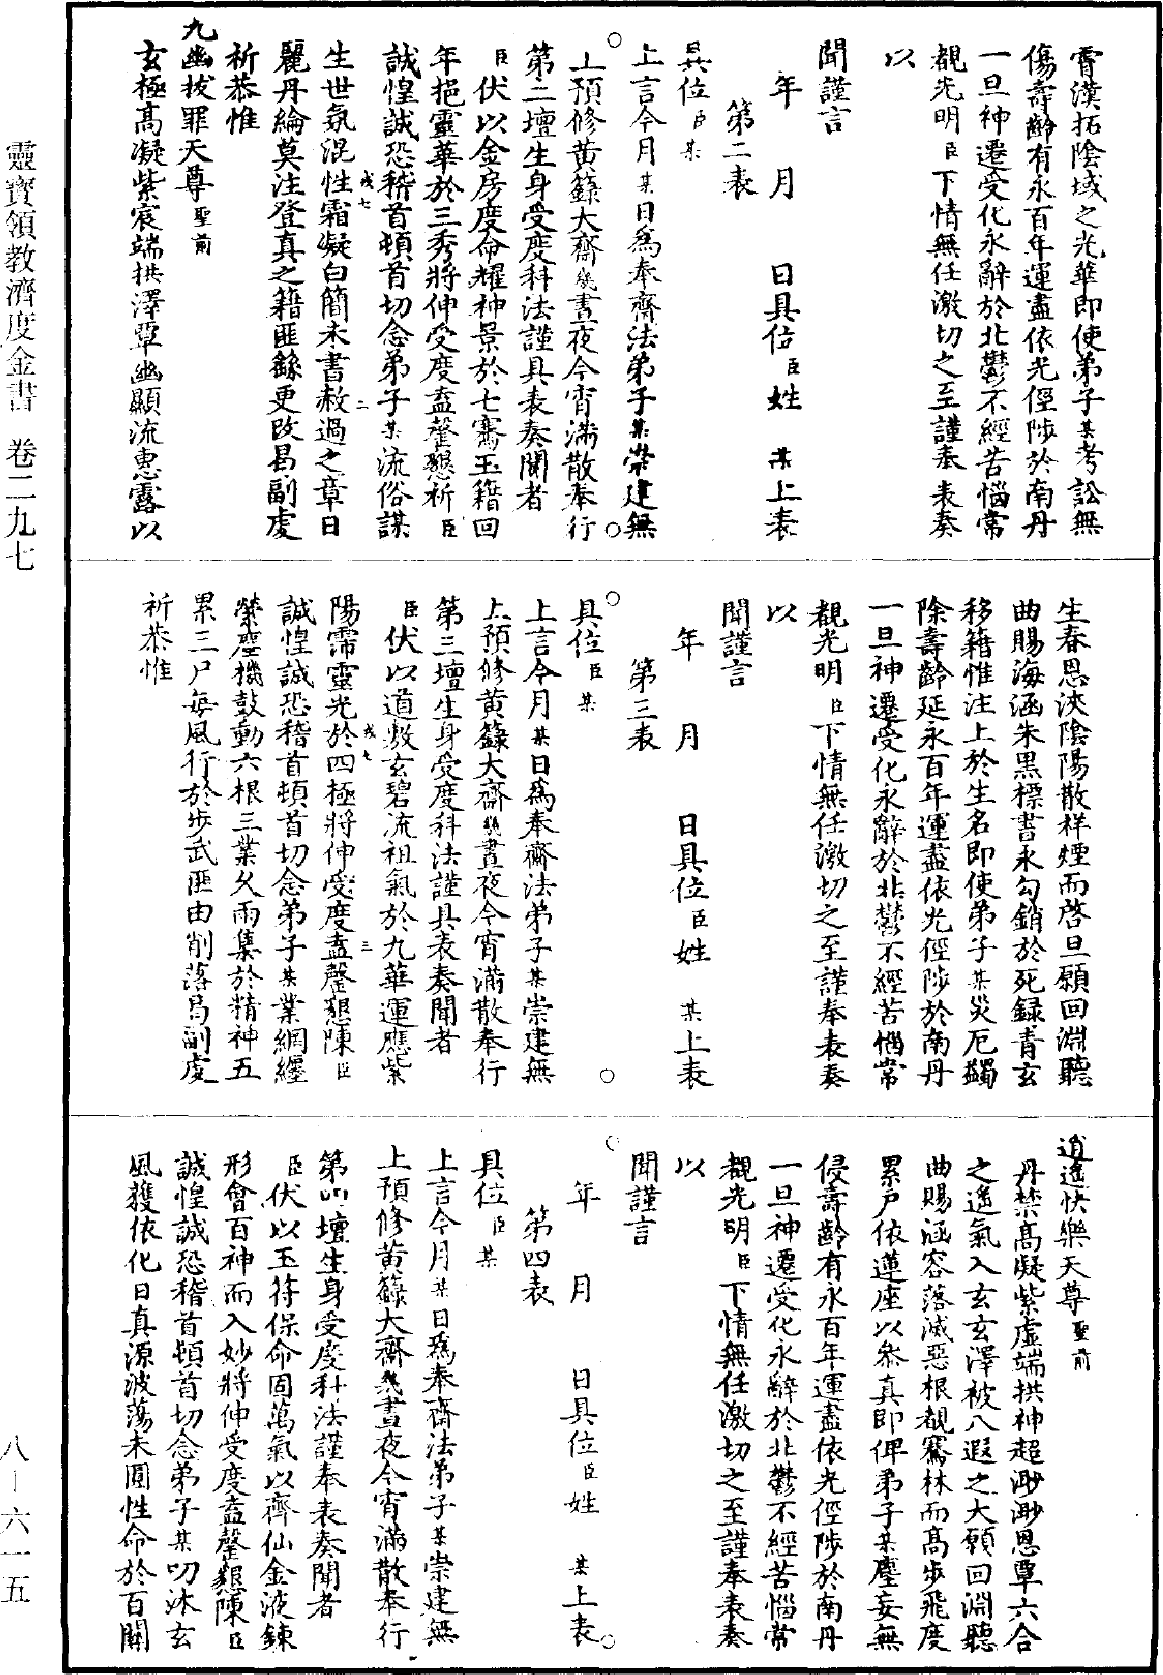 霄漢拓陰域之光華即使弟子某考訟無
傷壽齡有永百年運盡依光徑陟於南丹
一旦神遷受化永辭於北鬱不經苦惱常
覩光明臣下情無任激切之至謹奉表奏
以
聞謹言
年　月　日具位臣姓　某上表
第二表
具位臣某
上言今月某日爲奉齋法弟子某崇建無
上預修黄籙大齋幾晝夜今宵滿散奉行
第二壇生身受度科法謹具表奏聞者
臣伏以金房度命耀神景於七騫玉籍回
年挹靈華於三秀將伸受度盍罄懇祈臣
誠惶誠恐稽首頓首切念弟子某流俗謀
戎七　二
生世氛混性霜凝白簡未書赦過之章日
麗丹綸莫注登真之籍匪繇更改曷副虔
祈恭惟
九幽拔罪天尊聖前
玄極高凝紫宸端拱澤覃幽顯流惠露以
生春恩浹陰陽散祥煙而啓旦願回淵聽
曲賜海涵朱黑標書永勾銷於死録青玄
移籍惟注上於生名即使弟子某災厄蠲
除壽齡延永百年運盡依光徑陟於南丹
一旦神遷受化永辭於北鬱不經苦惱常
覩光明臣下情無任激切之至謹奉表奏
以
聞謹言
年　月　日具位臣姓　某上表
第三表
具位臣某
上言今月某日爲奉齋法弟子某崇建無
上預修黄籙大齋幾晝夜今宵滿散奉行
第三壇生身受度科法謹具表奏聞者
臣伏以道敷玄碧流祖氣於九華運應紫
戎七　三
陽霈靈光於四極將伸受度盍罄懇陳臣
誠惶誠恐稽首頓首切念弟子某業網纏
縈塵機鼓動六根三業久雨集於精神五
累三尸每風行於步武匪由削落曷副虔
祈恭惟
逍遙快樂天尊聖前
丹禁高凝紫虛端拱神超渺渺恩覃六合
之遙氣入玄玄澤被八遐之大願回淵聽
曲賜涵容落滅惡根覩騫林而高步飛度
累尸依蓮座以參真即俾弟子某塵妄無
侵壽齡有永百年運盡依光徑陟於南丹
一旦神遷受化永辭於北鬱不經苦惱常
覩光明臣下情無任激切之至謹奉表奏
以
聞謹言
年　月　日具位臣姓　某上表
第四表
具位臣某
上言今月某日爲奉齋法弟子某崇建無
上預修黄籙大齋幾晝夜今宵滿散奉行
第四壇生身受度科法謹奉表奏聞者
臣伏以玉符保命固萬氣以齊仙金液鍊
形會百神而入妙將伸受度盍罄懇陳臣
誠惶誠恐稽首頓首切念弟子某叨沐玄
風獲依化日真源波蕩未圓性命於百關
靈寶領教濟度金書　卷二九七
八—六一五